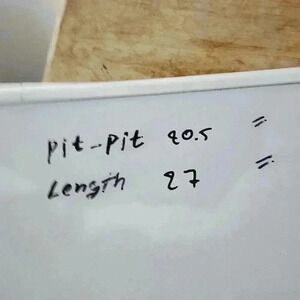 pit-pit 20.5 "
Length 27 "